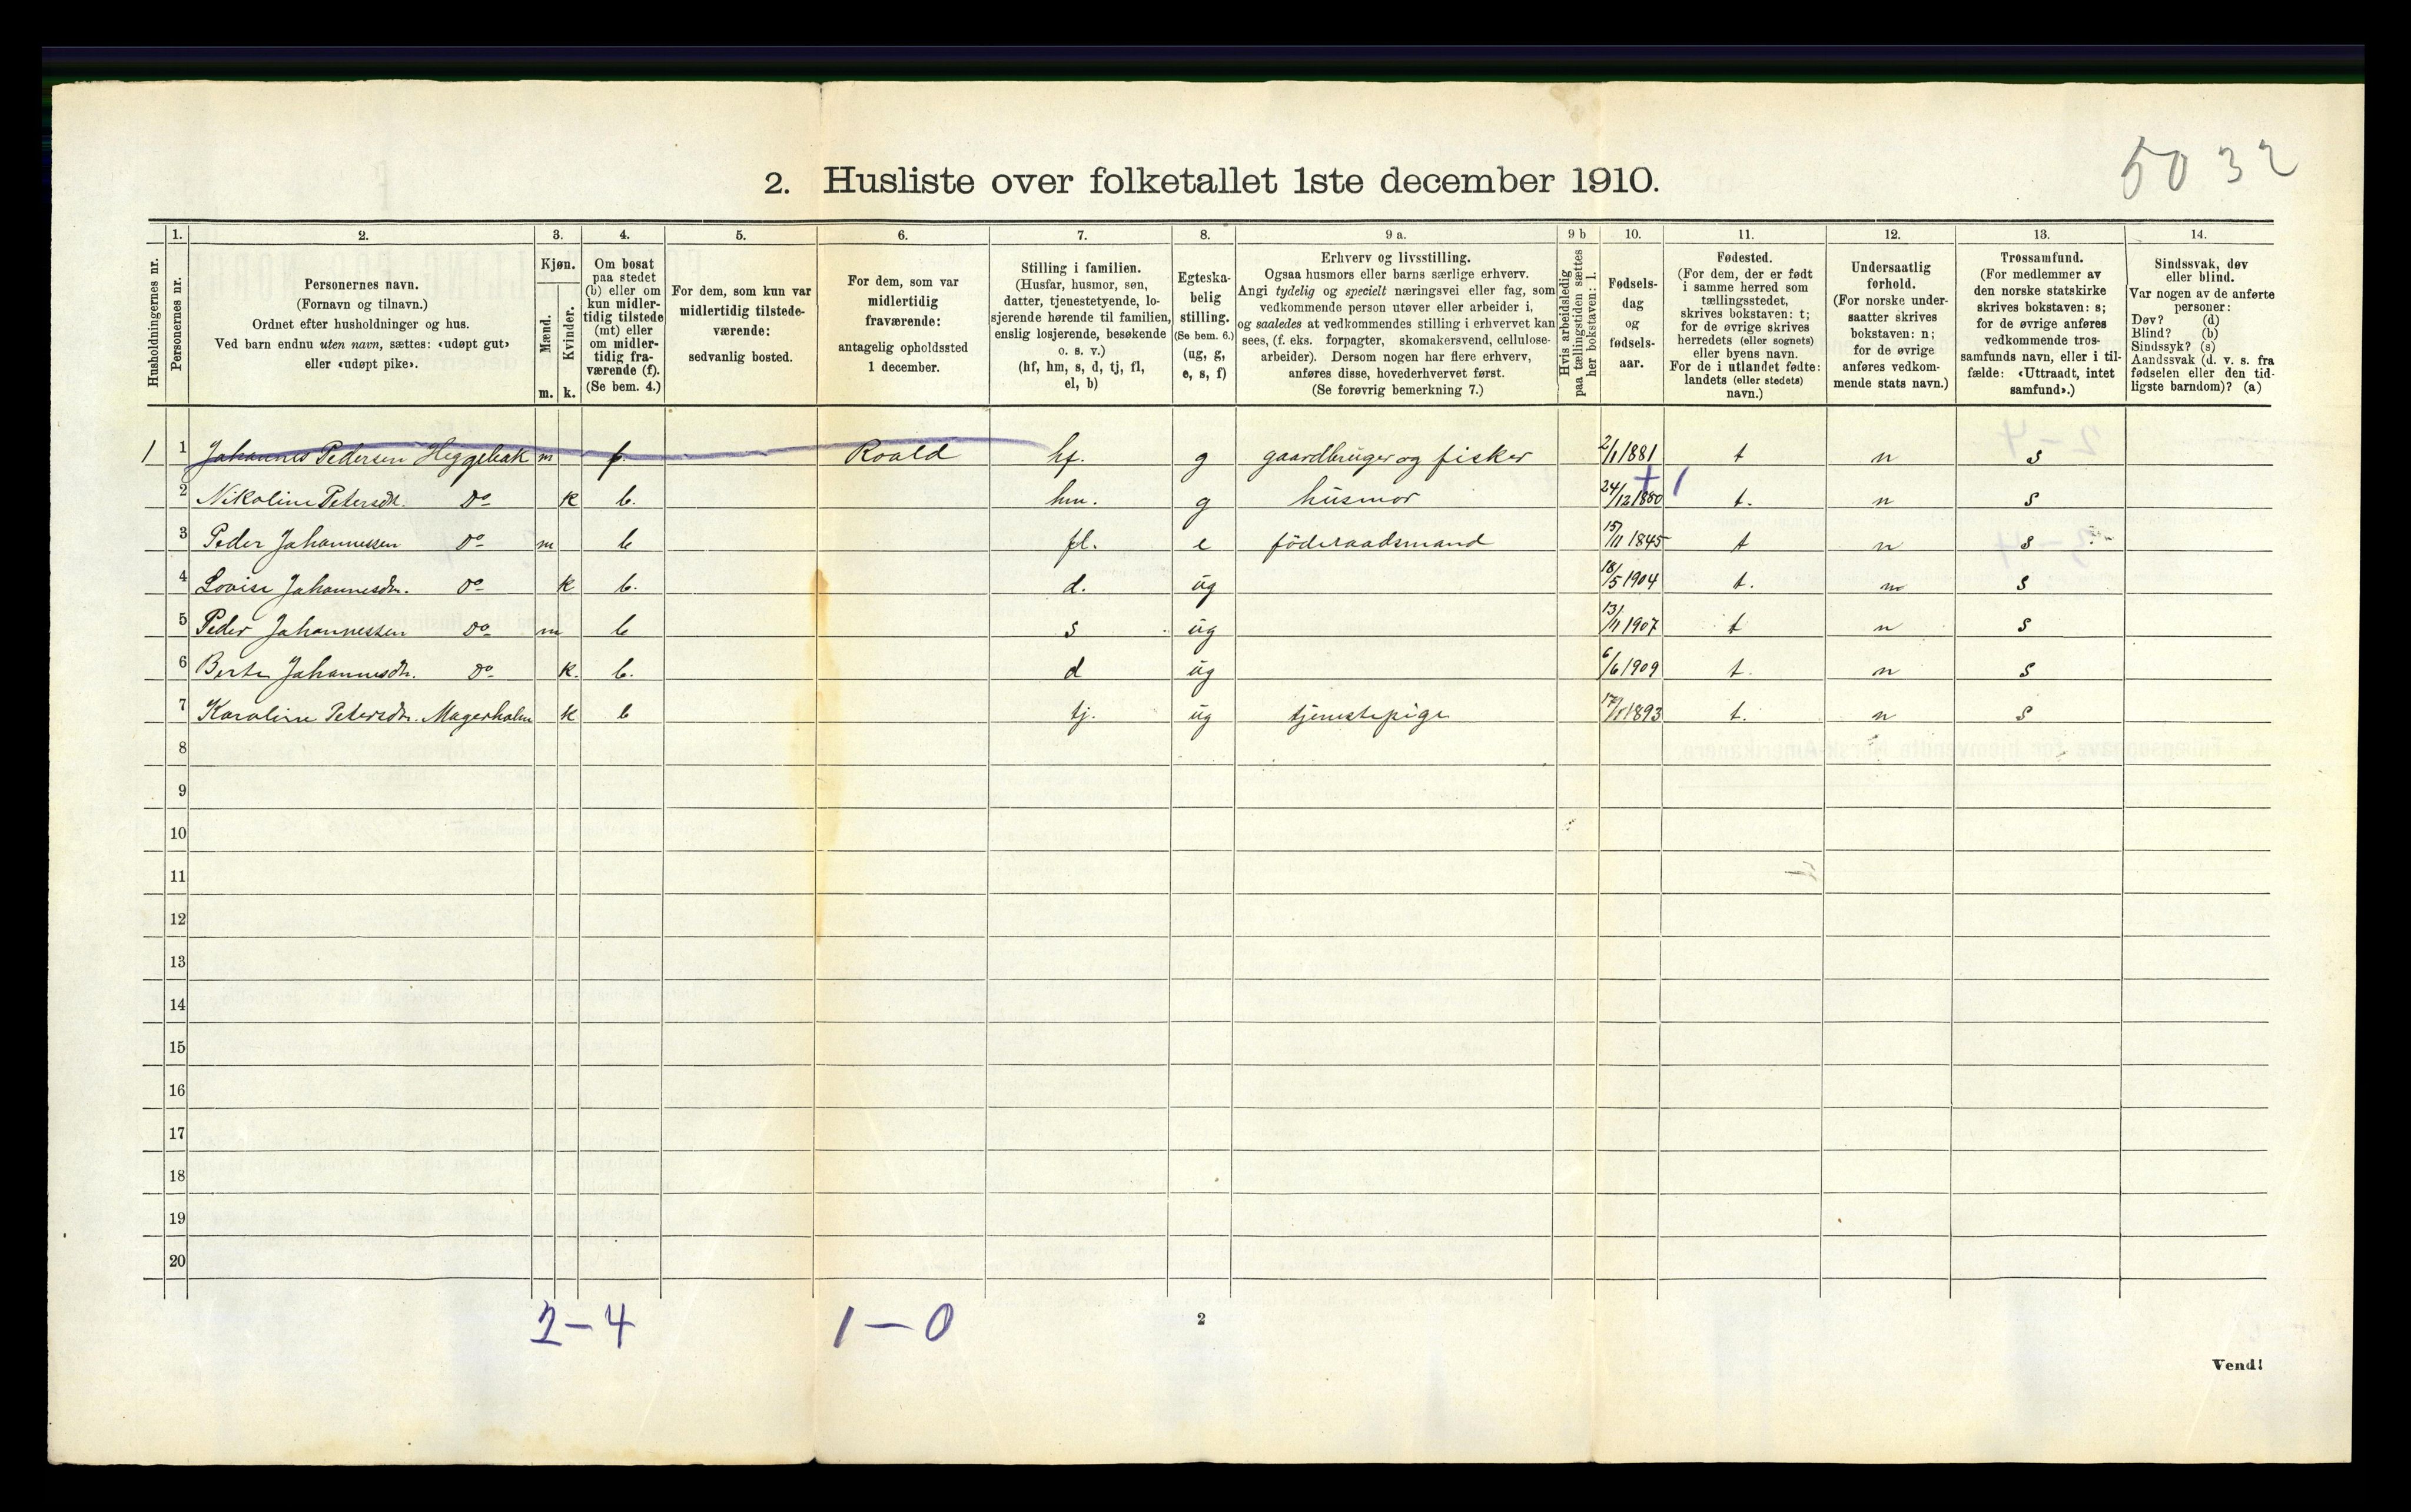 5032
2. Husliste over folketallet 1ste december 1910.
Husholdningernes nr.
1.
Personernes nr.
2.
Personernes navn.
(Fornavn og tilnavn.)
Ordnet efter husholdninger og hus.
Ved barn endnu uten navn, sættes: «udøpt gut»
eller «udøpt pike».
3.
Kjøn.
Mænd.
Kvinder.
m. k.
4.
Om bosat
paa stedet
(b) eller om
kun midler-
tidig tilstede
(mt) eller
om midler-
tidig fra-
værende (f).
(Se bem. 4.)
5.
For dem, som kun var
midlertidig tilstede-
værende:
sedvanlig bosted.
6.
For dem, som var
midlertidig
fraværende:
antagelig opholdssted
1 december.
7.
Stilling i familien.
(Husfar, husmor, søn,
datter, tjenestetyende, lo-
sjerende hørende til familien,
enslig losjerende, besøkende
o. s. v.)
(hf, hm, s, d, tj, fl,
el, b)
8.
Egteska-
belig
stilling.
(Se bem. 6.)
(ug, g,
e, s, f)
9 a.
Erhverv og livsstilling.
Ogsaa husmors eller barns særlige erhverv.
Angi tydelig og specielt næringsvei eller fag, som
vedkommende person utøver eller arbeider i,
og saaledes at vedkommendes stilling i erhvervet kan
sees, (f. eks. forpagter, skomakersvend, cellulose-
arbeider). Dersom nogen har flere erhverv,
anføres disse, hovederhvervet først.
(Se forøvrig bemerkning 7.)
9 b
Hvis arbeidsledig
paa tællingstiden sættes
her bokstaven: l.
10.
Fødsels-
dag
og
fødsels-
aar.
11.
Fødested.
(For dem, der er født
i samme herred som
tællingsstedet,
skrives bokstaven: t;
for de øvrige skrives
herredets (eller sognets)
eller byens navn.
For de i utlandet fødte:
landets (eller stedets)
navn.)
12.
Undersaatlig
forhold.
(For norske under-
saatter skrives
bokstaven: n;
for de øvrige
anføres vedkom-
mende stats navn.)
13.
Trossamfund.
(For medlemmer av
den norske statskirke
skrives bokstaven: s;
for de øvrige anføres
vedkommende tros-
samfunds navn, eller i til-
fælde: «Uttraadt, intet
samfund».)
14.
Sindssvak, døv
eller blind.
Var nogen av de anførte
personer:
Døv? (d)
Blind? (b)
Sindssyk? (s)
Aandssvak (d. v. s. fra
fødselen eller den tid-
ligste barndom)? (a)
1 1 Johannes Pedersen Heggebak m f. Roald hf. g gaardbruger og fisker 2/1 1881 t n s
2 Nikoline Petersdt. Do k b. hm. g husmor 24/12 1880 t. n s
3 Peder Johannessen Do m b fl. e föderaadsmand 15/11 1845 t n s
4 Lovise Johannesdtr. Do k b. d. ug 18/5 1904 t. n s
5 Peder Johannessen Do m b s ug 13/11 1907 t n s
6 Berte Johannesdt. Do k. b. d ug 6/6 1909 t. n s
7 Karoline Petersdtr. Magerholm k b tj. ug tjenestepige 1893 t. n s
8
9
10
11
12
13
14
15
16
17
18
19
20
2-4 1-0
2
Vend!